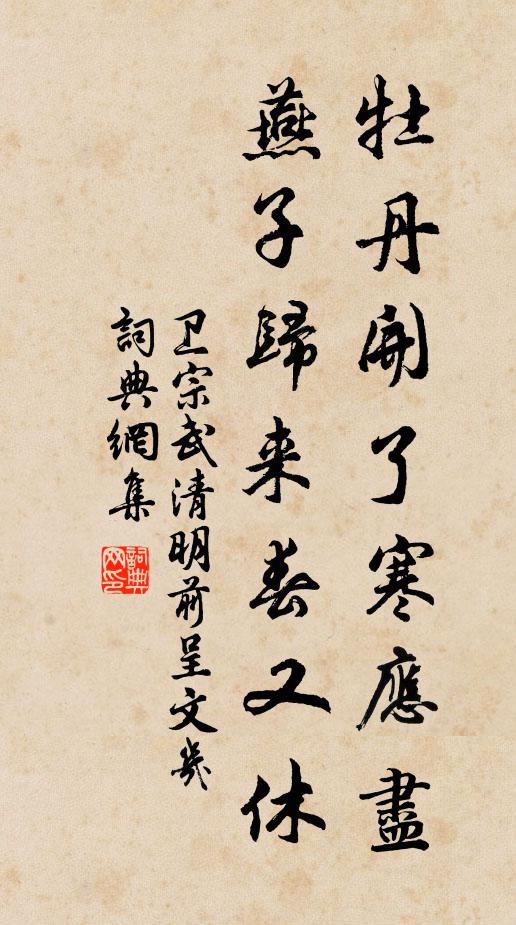 牡丹開了寒應盡
燕子歸来春又休
卫宗武清明前呈文幾
詞典網集
詞典
网印